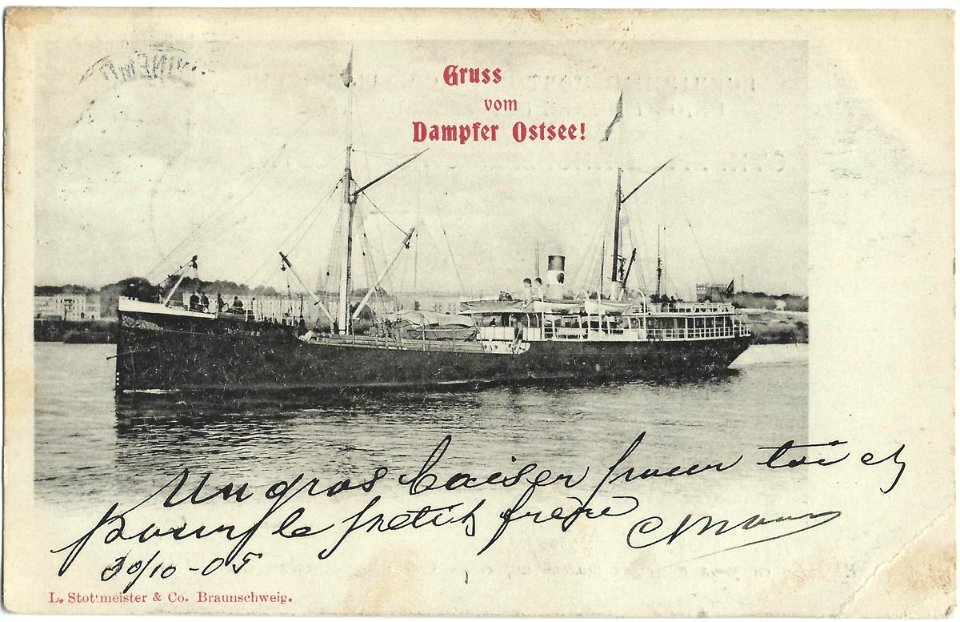 Gruss
vom
Dampfer Ostsee!
Un gros baiser pour toi et
pour le petit frère
30/10-05
L. Stottmeister & Co. Braunschweig.